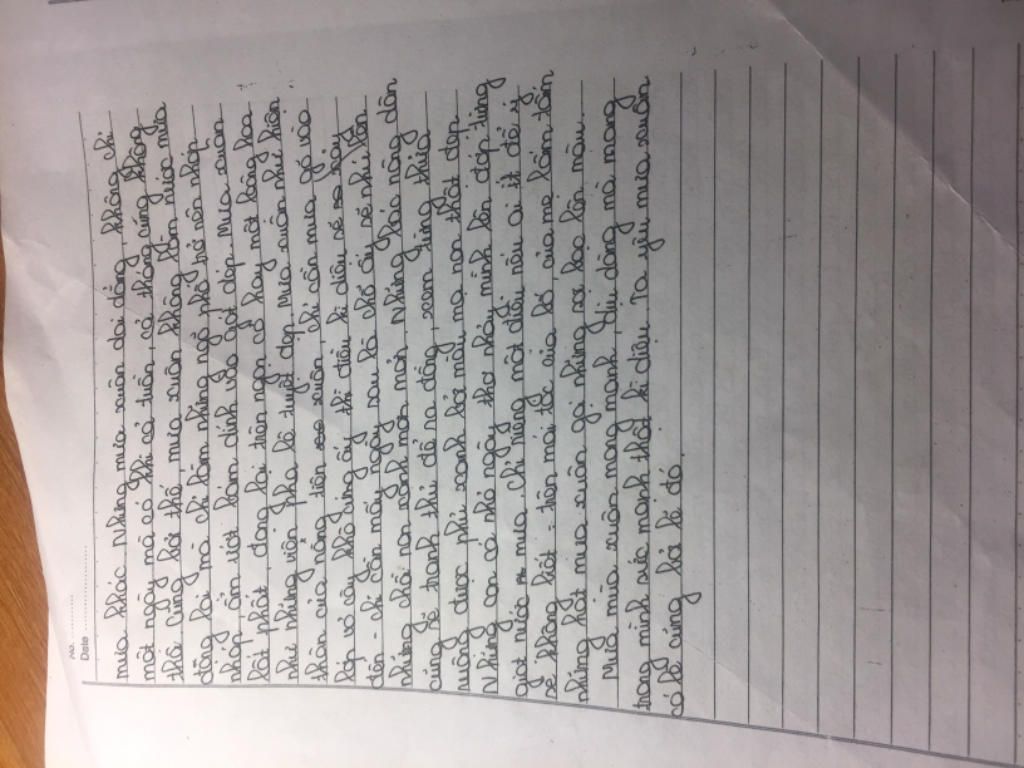 no. ..........
Date ....................
mưa khác. Những mưa xuân dai dẳng, không chỉ
một ngày mà có khi cả tuần, cả tháng cũng không
thôi. Cũng bởi thế, mưa xuân không làm mưa
dừng lại mà chỉ làm những ngõ phố trở nên nhớp
nháp, ẩm ướt, bám dính vào gót dép. Mưa xuân
lất phất, đọng lại trên ngọn cỏ hay một bông hoa
khi những viên pha lê tuyệt đẹp. Mưa xuân như hiền
thân của nàng tiên xuân, chỉ cần mưa gõ vào
lớp vỏ cây khô cứng ấy thì điều kì diệu sẽ xảy
đến - chỉ cần mấy ngày sau là chỗ ấy sẽ nhú lên
những chồi non xanh mơn mởn. Những bác nông dân
cũng sẽ tranh thủ để ra đồng, xem từng thửa
ruộng được phủ xanh bởi màu mạ non thật đẹp.
Những con cò nhỏ ngây thơ nhảy mình lên đớp từng
giọt nước mưa. Chỉ riêng một điều nếu ai ít để ý
sẽ không biết - trên mái tóc của bố, của mẹ lấm tấm
những hạt mưa xuân, gó những sợi bạc lận màu.
Mưa mùa xuân mong manh, dịu dàng mà mang
trong mình sức mạnh thật kì diệu. Ta yêu mưa xuân
có lẽ cũng bởi lẽ đó.